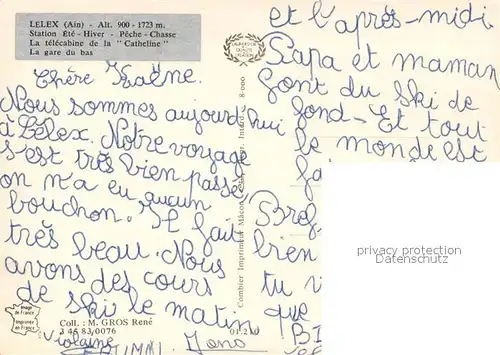 LELEX (Ain) - Alt. 900 - 1723 m.
Station Été - Hiver - Pêche - Chasse
La télécabine de la " Catheline "
La gare du bas
Chère
Nous sommes aujourd'hui
à Lélex. Notre voyage
s'est très bien passé,
on n'a eu aucun
bouchon. Il fait
très beau. Nous
avons des cours
de ski le matin
et l'après-midi
Papa et maman
font du ski de
fond - Et tout
le monde est
Bref
bien
tu
que
Combier Imprimeur Mâcon
8-000
Image
de France
Imprimée
en France
Coll. : M. GROS René
3 45 83 0076
01.210
Violaine
privacy protection
Datenschutz